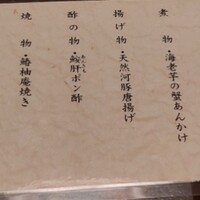 煮物・海老芋の蟹あんかけ
揚げ物・天然河豚唐揚げ
酢の物・鮟肝ポン酢
焼物・鰆柚庵焼き